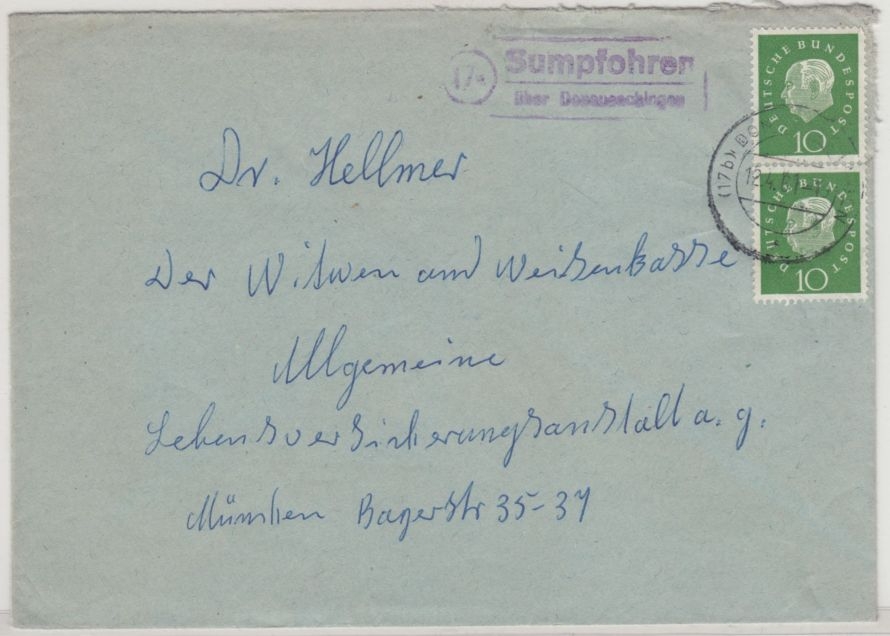 (17b
Sumpfohren
über Donaueschingen
DEUTSCHE BUNDESPOST
10
(17b) DO
12.4.61
DEUTSCHE BUNDESPOST
10
Dr. Hellmer
Der Witwen and Weisenkasse
Allgemeine
Lebensversicherungsanstalt a. g.
München Bayerstr 35-37